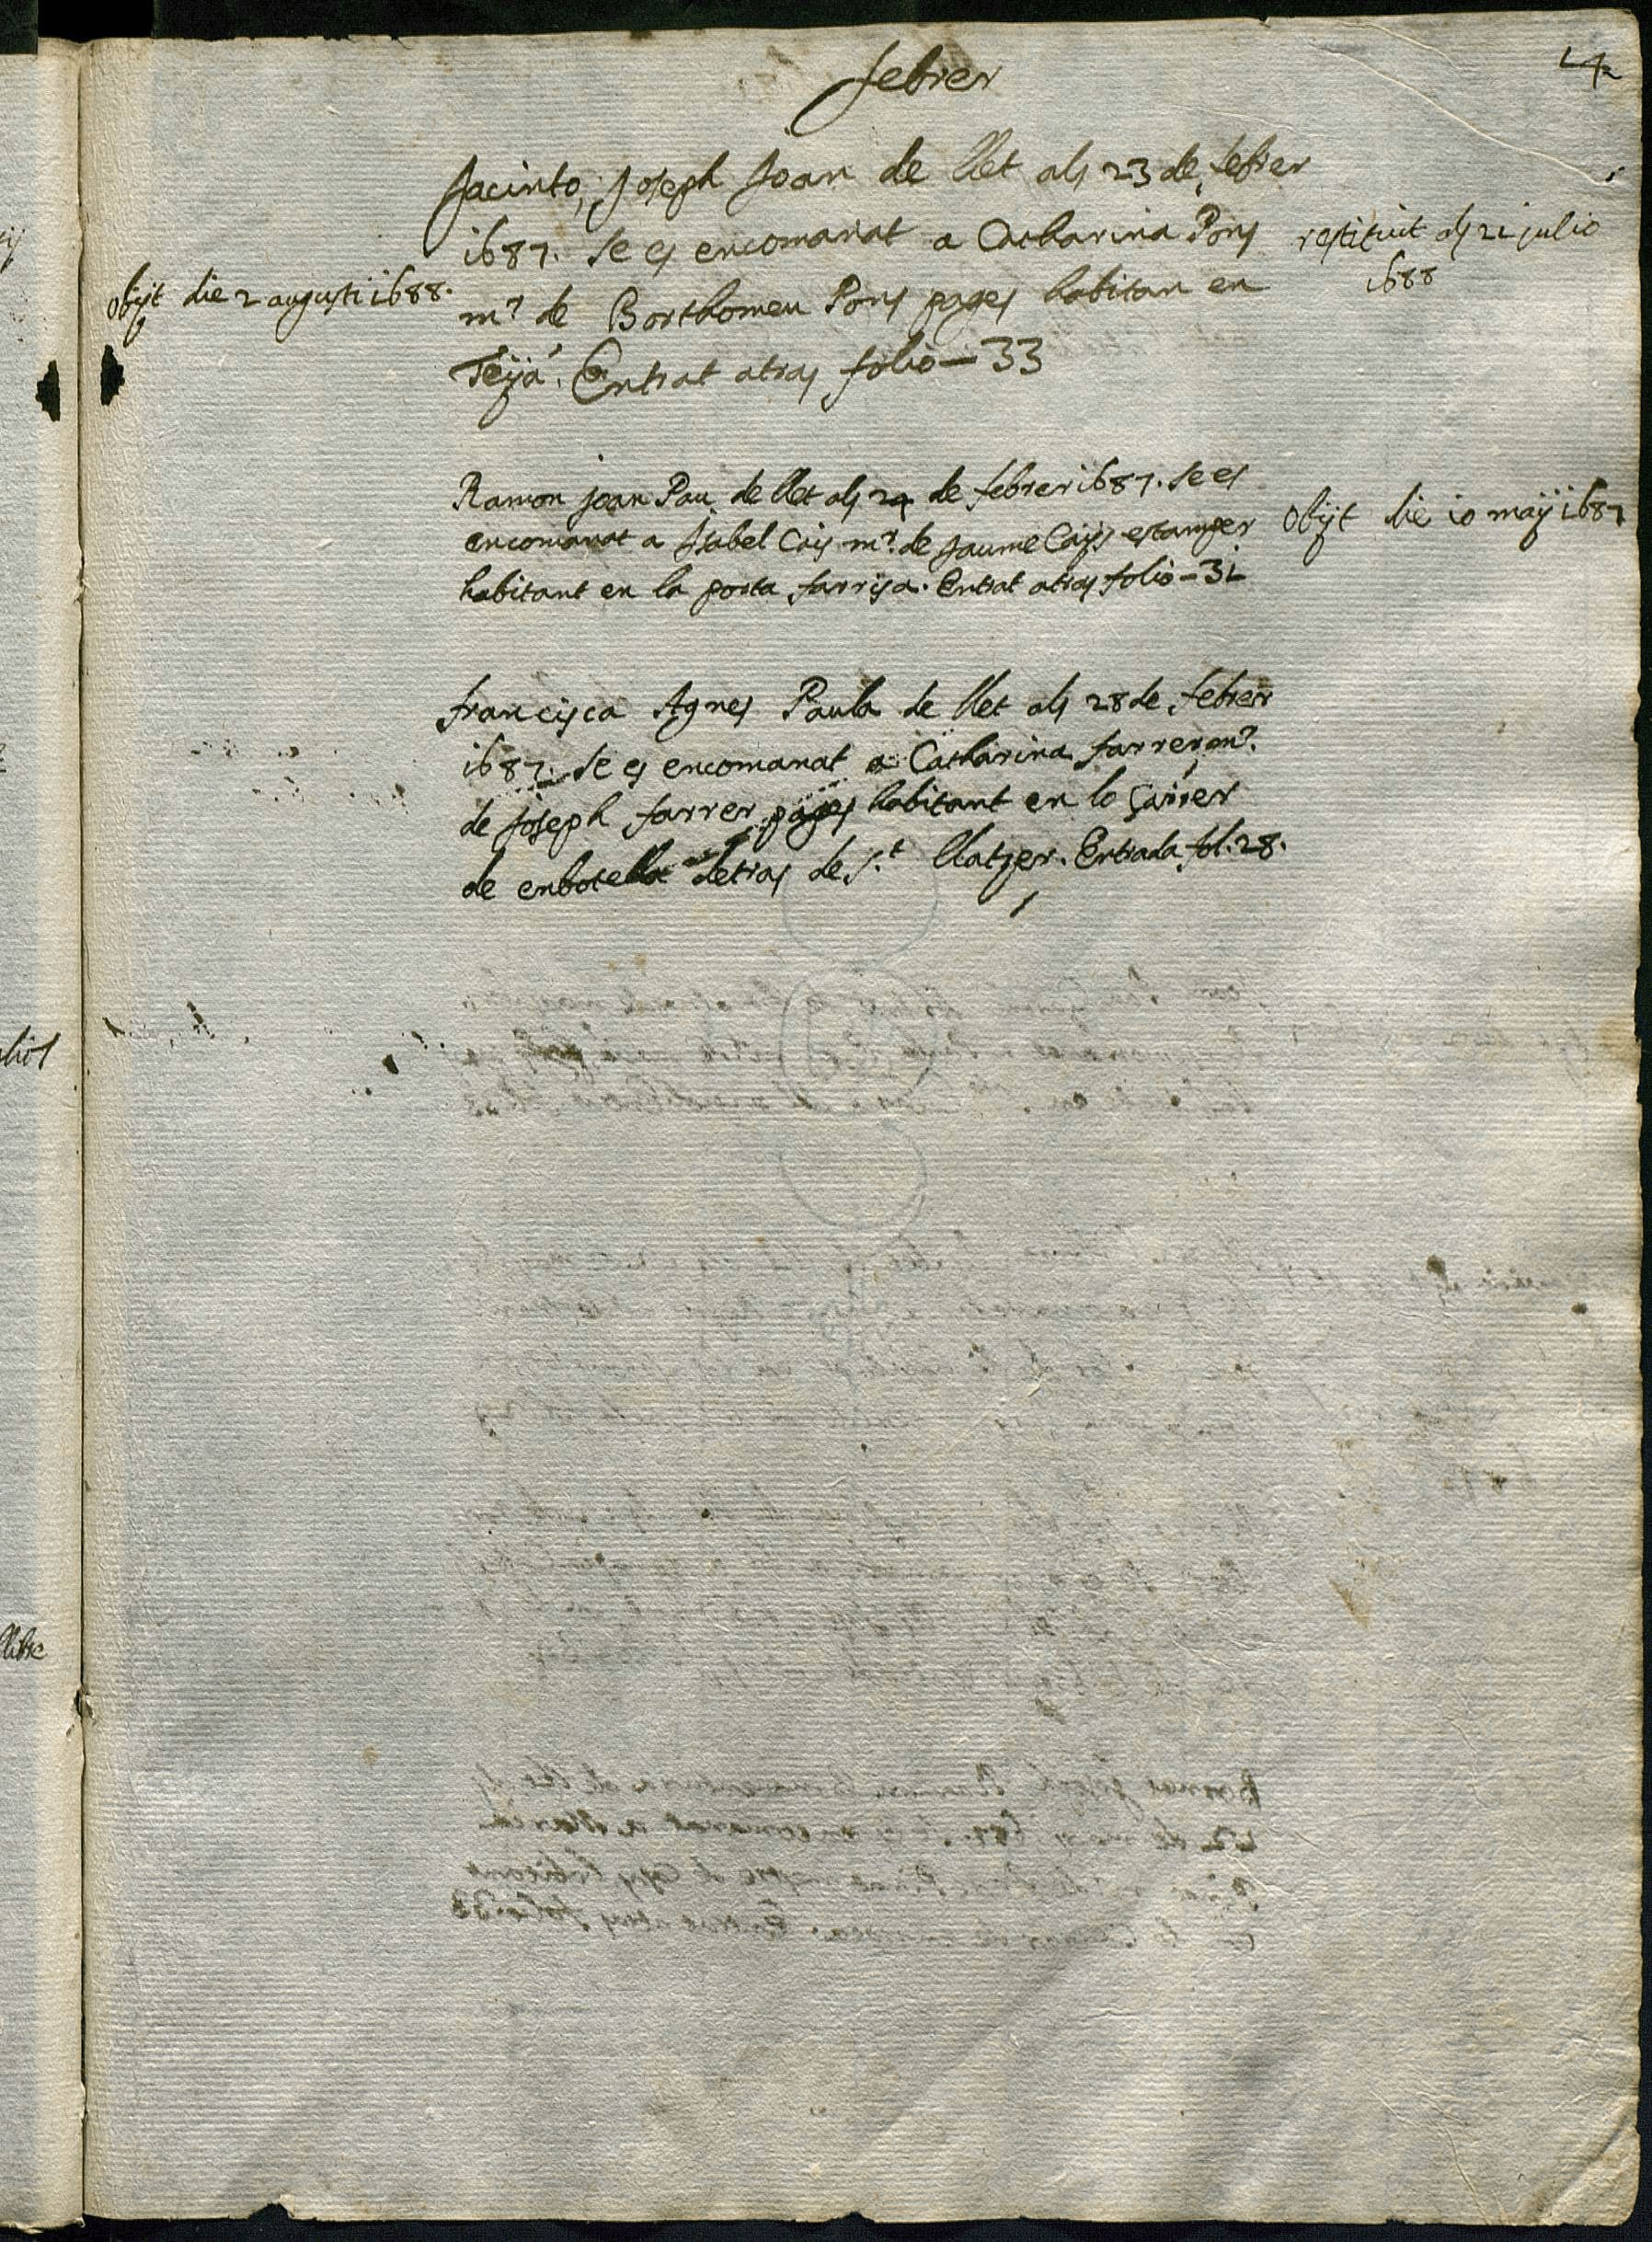 febrer
4
Jacinto, Joseph Joan de llet als 23 de febrer
1687. se es encomanat a Catharina Pons
mr de Barthomeu Pons pages habitan en
Teÿá. Entrat atras folio - 33
restituit als 21 julio
1688
Obijt die 2 augusti 1688.
Ramon joan Pau de llet als 24 de febrer 1687. se es
encomanat a Isabel Cais mr. de Jaume Cais estamper
habitant en la porta farrisa. Entrat atras folio - 31
Obijt die 10 maÿ 1687
francisca Agnes Paula de llet als 28 de febrer
1687. se es encomanat a Catharina farrer mr.
de Joseph farrer pages habitant en lo Carrer
de enbotella detras de St. llatzer. Entrada fol. 28.